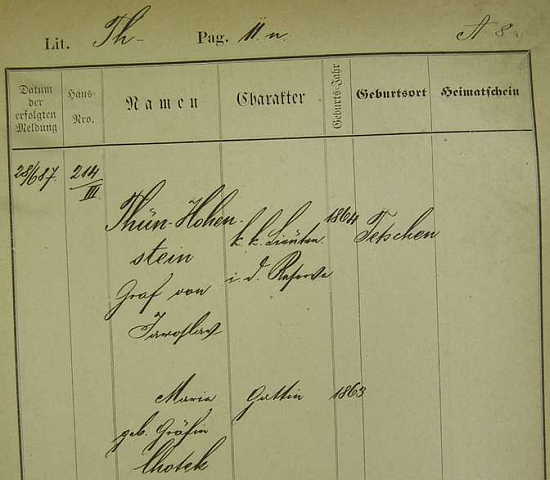 Lit. Th- Pag. II. n. A 8.
Datum der erfolgten Meldung
Haus-Nro.
Namen
Charakter
Geburts-Jahr
Geburtsort
Heimatschein
28/6 87. 214/III.
Thun-Hohen- k. k. Lieuten. 1864 Tetschen
stein i. d. Reserve
Graf von
Jaroslav
Maria Gattin 1863
geb. Gräfin
Chotek